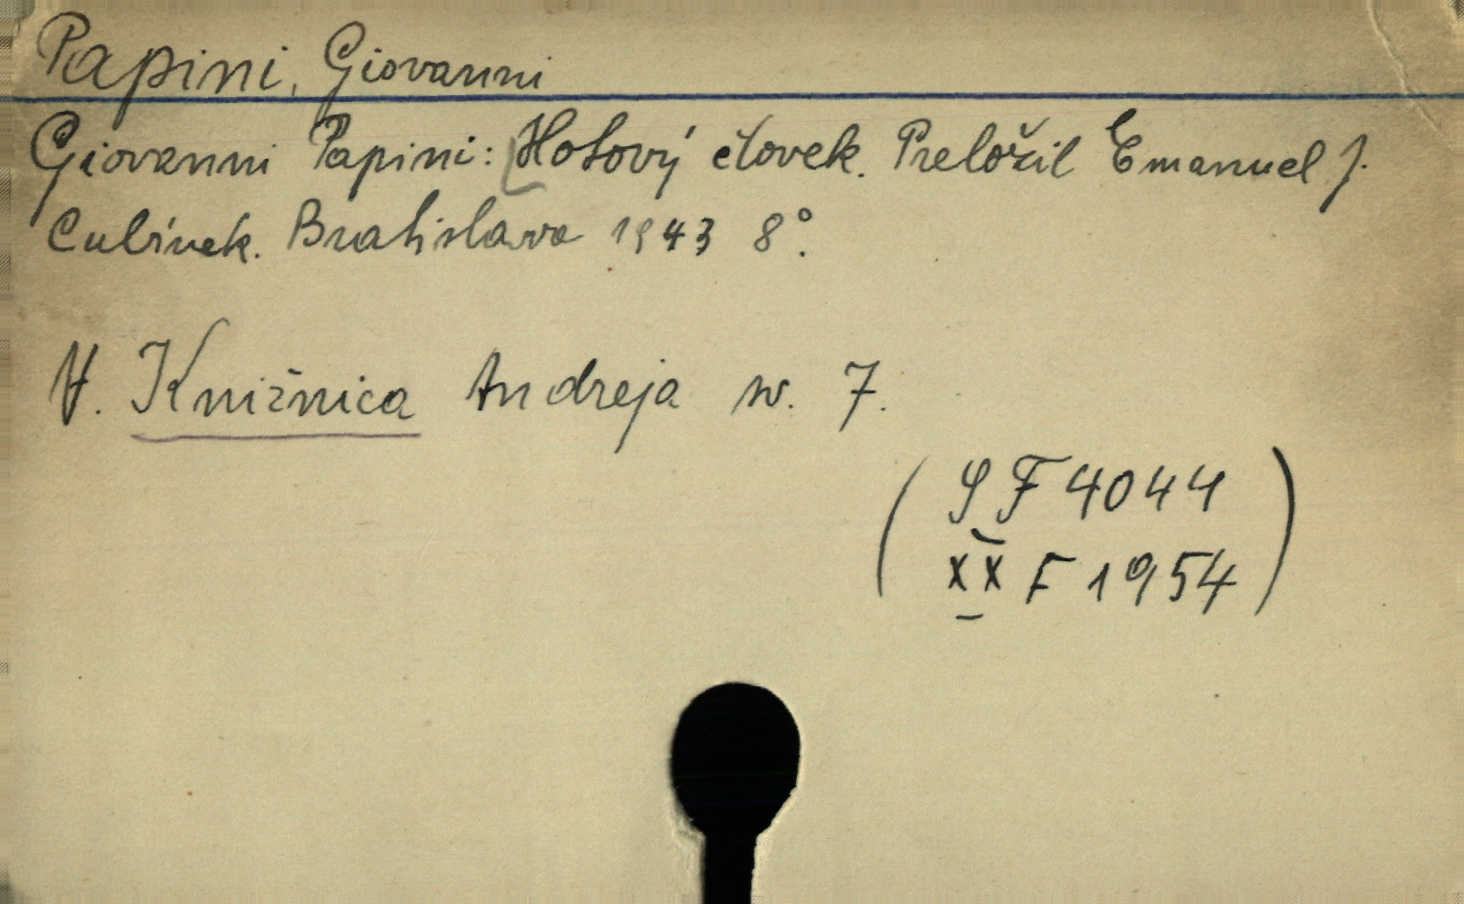 Papini, Giovanni
Giovanni Papini: Hotový človek. Preložil Emanuel J.
Cubínek. Bratislava 1943 8°.
V. Knižnica Andreja sv. 7.
(SF 4044
XX F 1954)